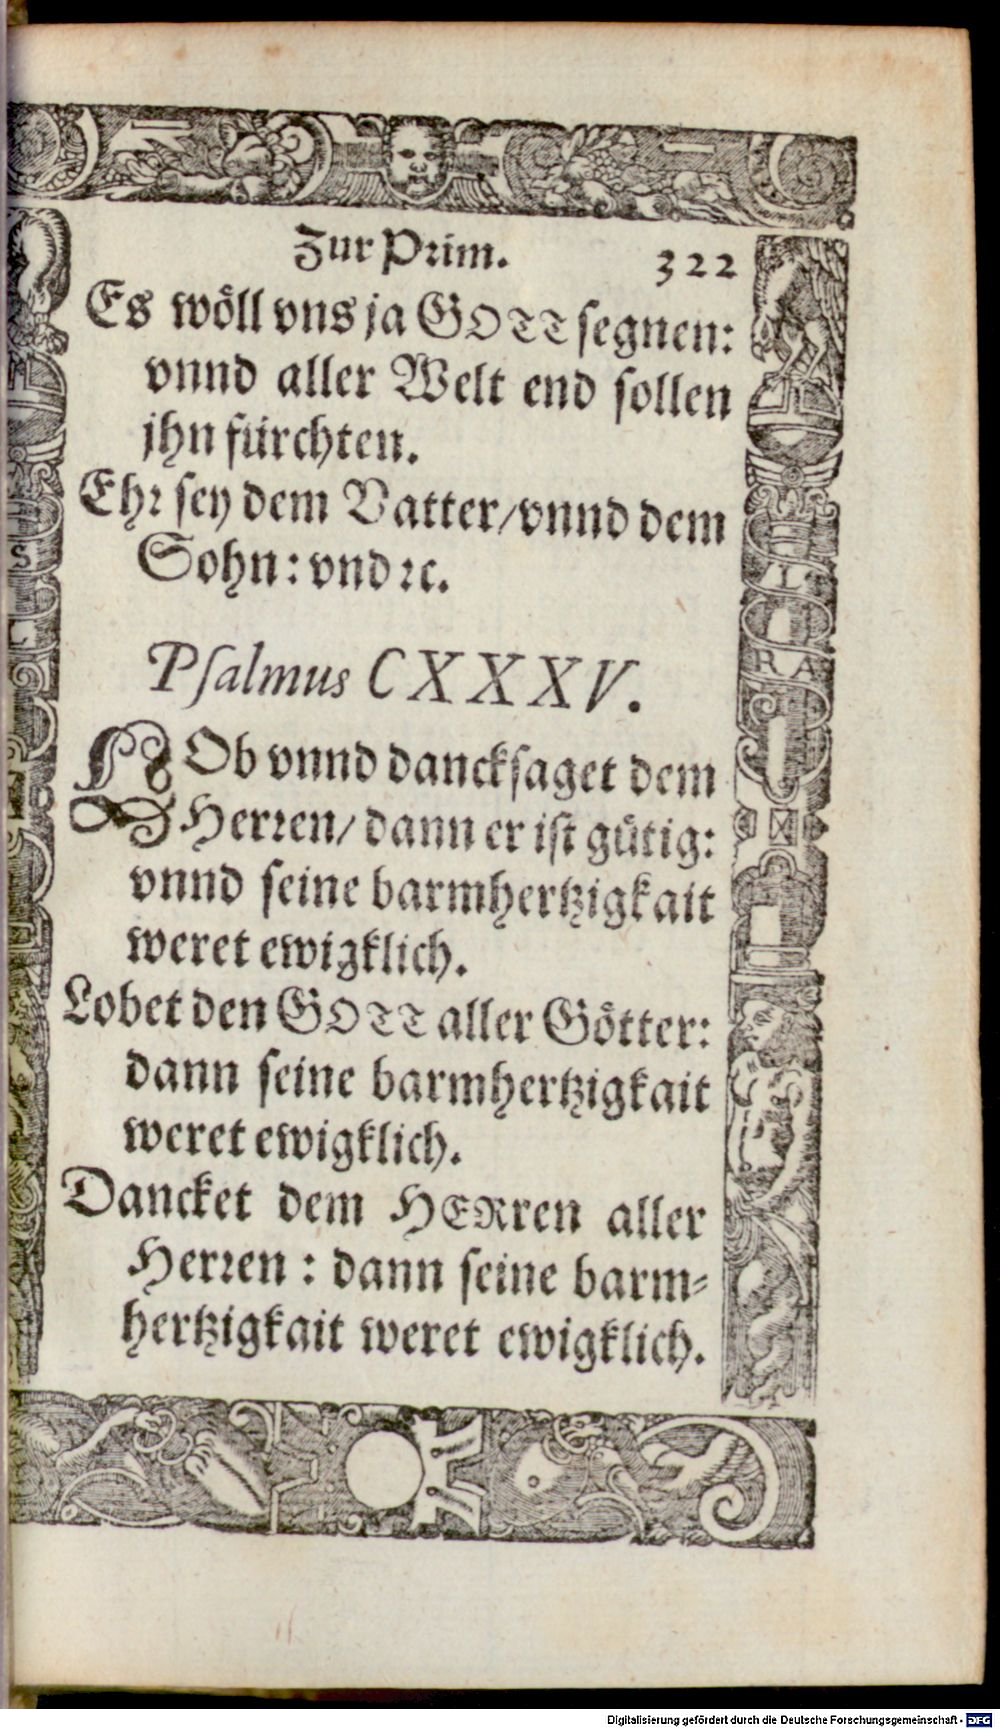 Zur Prim. 322
Es wöll vns ja GOTT segnen:
vnnd aller Welt end sollen
jhn fürchten.
Ehr sey dem Vatter/vnnd dem
Sohn: vnd ꝛc.
Psalmus CXXXV.
LOb vnnd dancksaget dem
Herren/ dann er ist gütig:
vnnd seine barmhertzigkait
weret ewigklich.
Lobet den GOTT aller Götter:
dann seine barmhertzigkait
weret ewigklich.
Dancket dem HERren aller
Herren : dann seine barm-
hertzigkait weret ewigklich.
S
L
RA
Digitalisierung gefördert durch die Deutsche Forschungsgemeinschaft - DFG